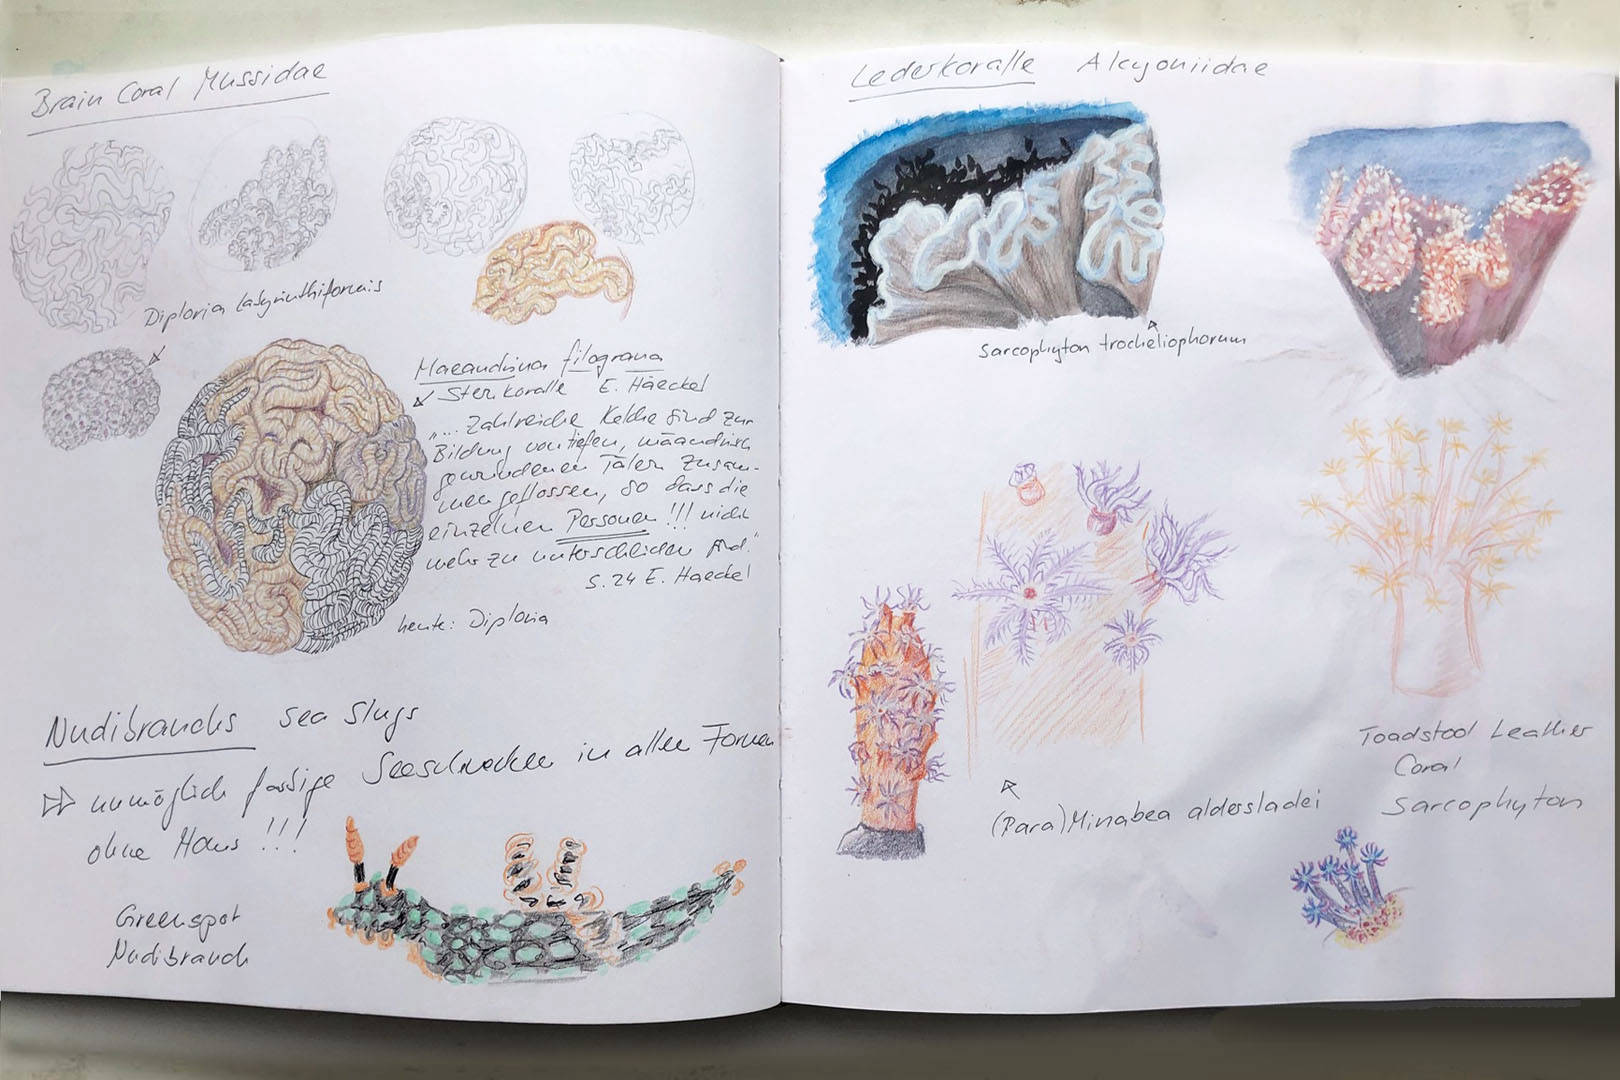 Brain Coral Mussidae
Diploria labyrinthiformis
Maeandrina filograna
Sternkoralle E. Haeckel
"... Zahlreiche Kelche sind zur
Bildung von tiefen, mäandrisch
gewundenen Tälern zusam-
mengeflossen, so dass die
einzelnen Personen !!! nicht
mehr zu unterscheiden sind."
S. 24 E. Haeckel
heute: Diploria
Nudibranchs sea slugs
Seeschnecken in allen Formen
unmöglich farbige
ohne Haus !!!
Greenspot
Nudibranch
Lederkoralle Alcyoniidae
Sarcophyton trocheliophorum
(Para)Minabea aldersladei
Toadstool Leather
Coral
Sarcophyton